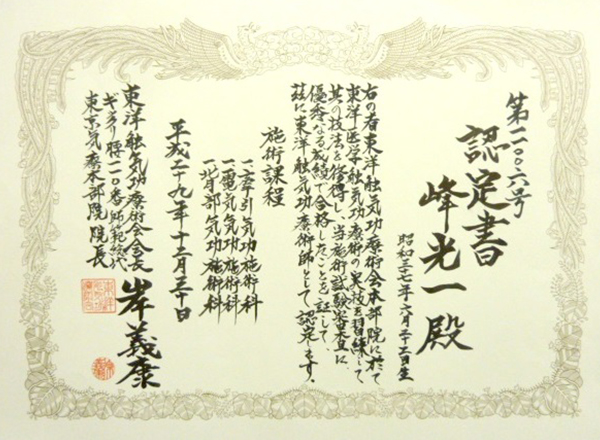 第二〇〇六号
認定書
峰光一殿
昭和三七年六月二十三日生
右の者東洋触気功療術会本部院に於て
東洋医学触気功療術の実技を習練して
其の技法を修得し、当施術試験審査に
優秀なる成績で合格したことを証して
茲に東洋触気功療術師として認定す。
施術課程
一、牽引気功施術科
一、電気気功施術科
一、背部気功施術科
平成二九年十二月三十日
東洋触気功療術会会長
ギックリ腰一一〇番師範総代
東京気療本部院院長
岸義康